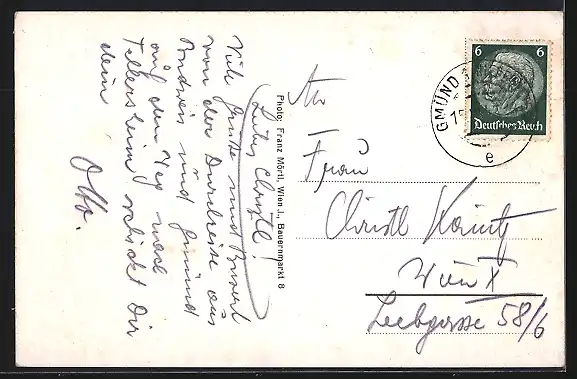 Liebe Christl!
Viele Grüße und Busserl
von der Durchreise aus
Budweis und Gmünd
auf dem Weg nach
schickt Dir
dein
Otto.
Photo: Franz Mörtl, Wien I., Bauernmarkt 8
An
Frau
Christl
Wien X
Leebgasse 58/6
6 6
Deutsches Reich
GMÜND
e